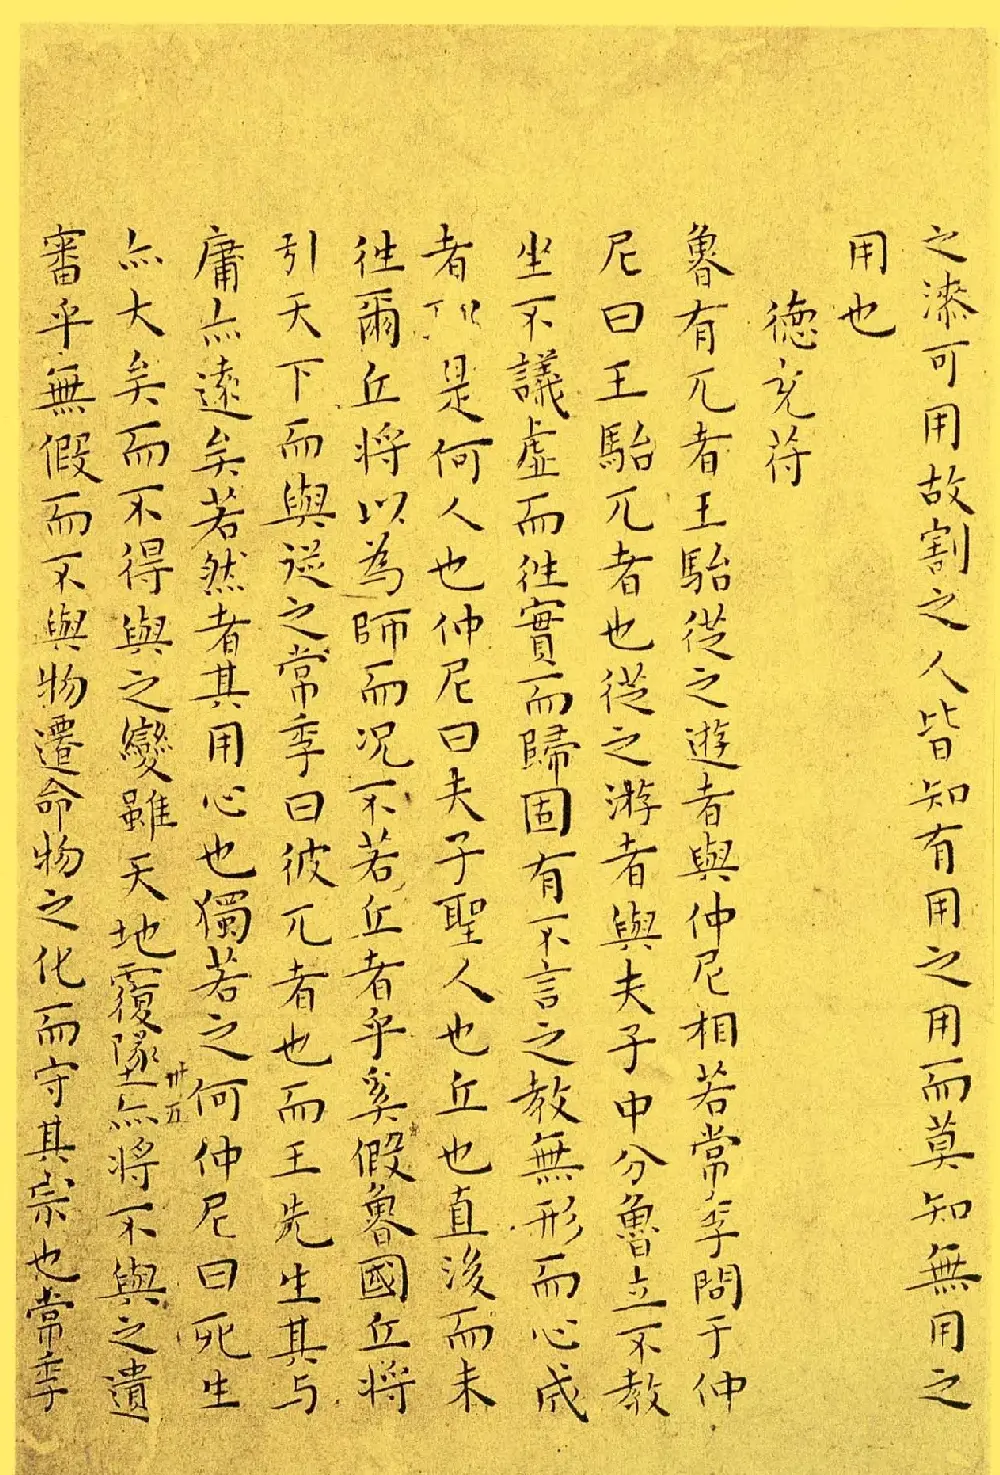 之漆可用故割之人皆知有用之用而莫知無用之
用也
德充符
魯有兀者王駘從之遊者與仲尼相若常季問于仲
尼曰王駘兀者也從之游者與夫子中分魯立不教
坐不議虛而往實而歸固有不言之教無形而心成
者 是何人也仲尼曰夫子聖人也丘也直後而未
往爾丘將以為師而况不若丘者乎奚假魯國丘將
引天下而與從之常季曰彼兀者也而王先生其与
庸亦遠矣若然者其用心也獨若之何仲尼曰死生
亦大矣而不得與之變雖天地覆墜亦將不與之遺
卅五
審乎無假而不與物遷命物之化而守其宗也常季